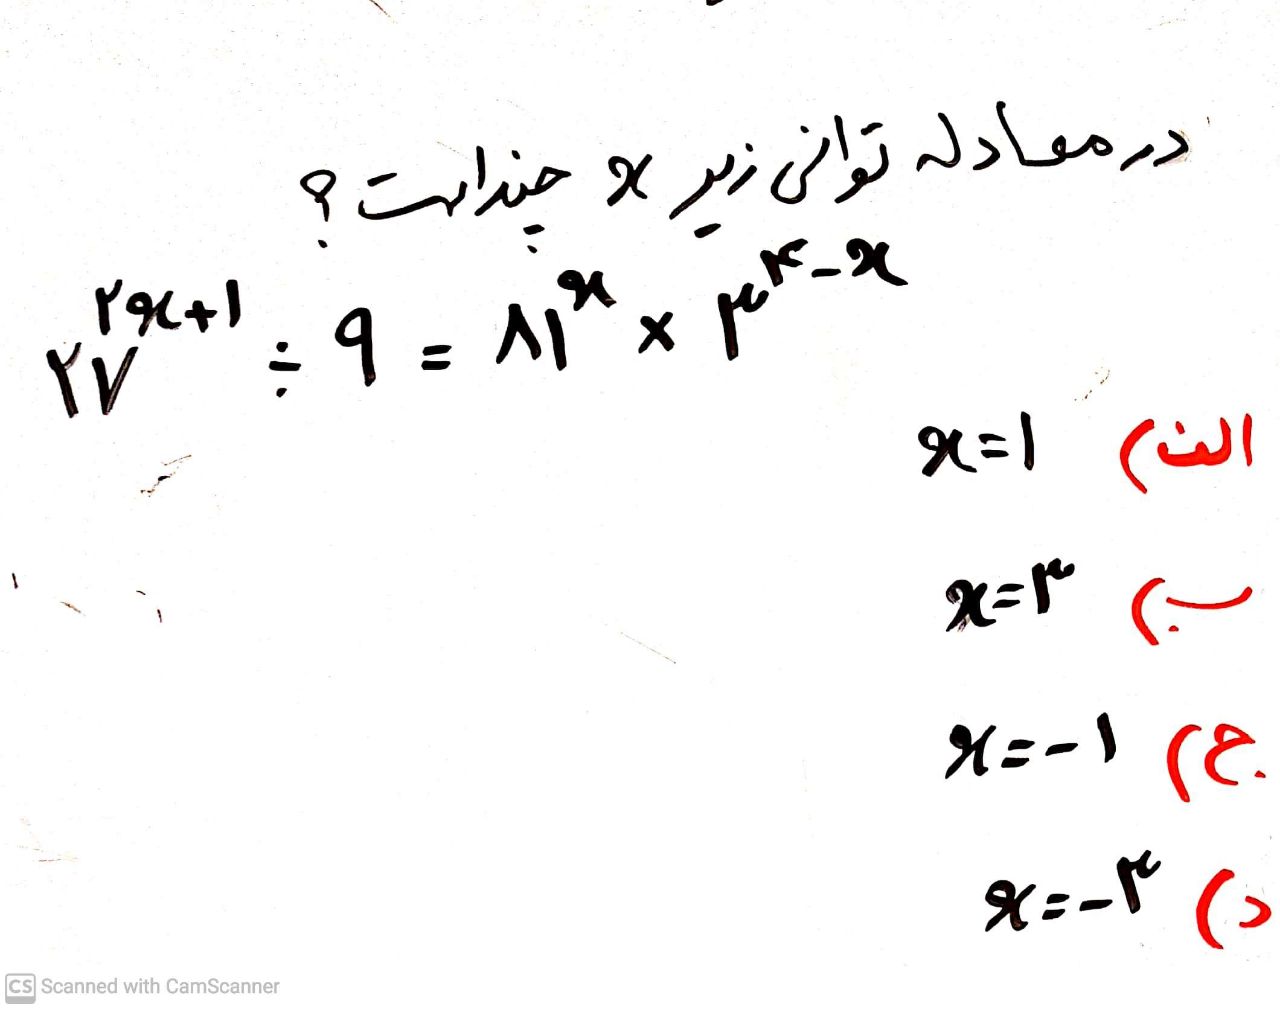 در معادله توانی زیر x چند است؟
۲۷^{۲x+۱} ÷ ۹ = ۸۱^x × ۳^{۴-x}
الف) x=۱
ب) x=۳
ج) x=-۱
د) x=-۳
CS Scanned with CamScanner